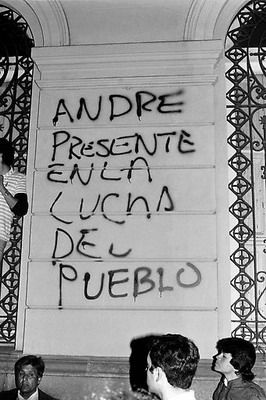 ANDRE
PRESENTE
EN LA
LUCHA
DEL
PUEBLO